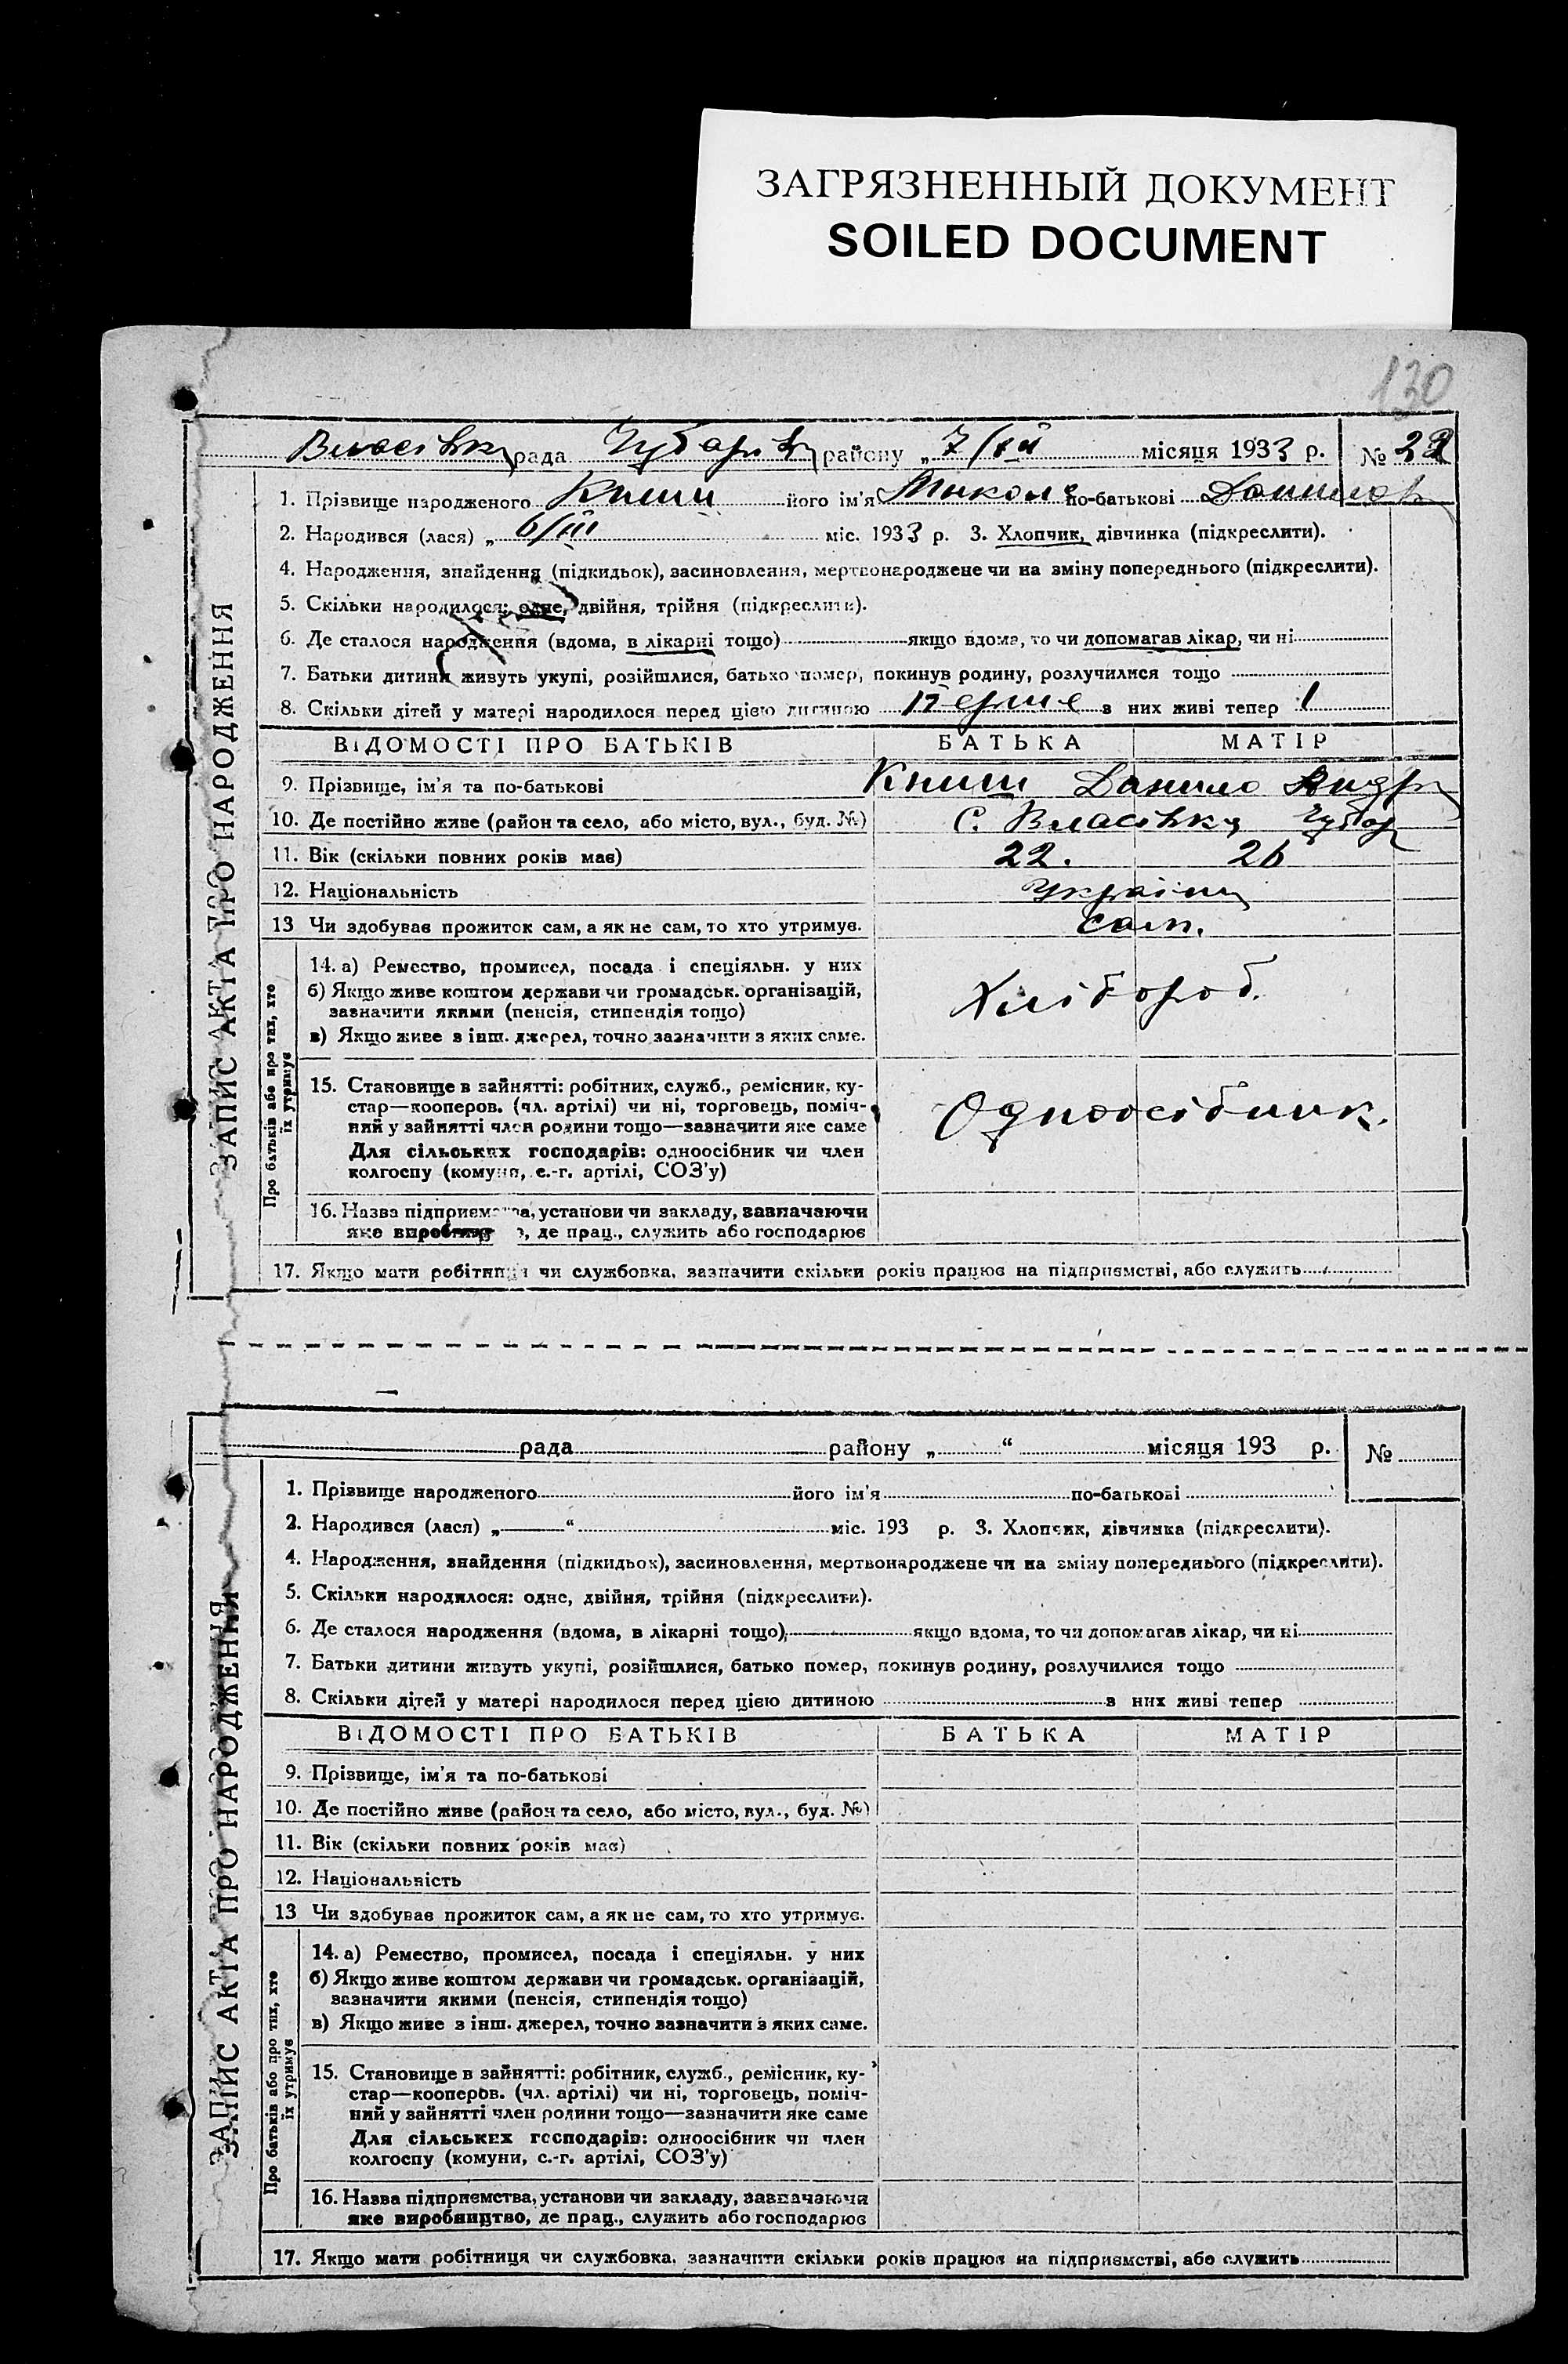 ЗАГРЯЗНЕННЫЙ ДОКУМЕНТ
SOILED DOCUMENT
130
Власівк рада Чубарів району „7/ІІІ місяця 1933 р. №
1. Прізвище народженого Книш його ім'я Микола по-батькові Данилов
2. Народився (лася) „6/ІІІ міс. 1933 р. 3. Хлопчик, дівчинка (підкреслити).
4. Народження, знайдення (підкидьок), засиновлення, мертвонароджене чи на зміну попереднього (підкреслити).
5. Скільки народилося: одне, двійня, трійня (підкреслити).
6. Де сталося народження (вдома, в лікарні тощо) якщо вдома, то чи допомагав лікар, чи ні
7. Батьки дитини живуть укупі, розійшлися, батько помер, покинув родину, розлучилися тощо
8. Скільки дітей у матері народилося перед цією дитиною Перше з них живі тепер 1
ВІДОМОСТІ ПРО БАТЬКІВ БАТЬКА МАТІР
9. Прізвище, ім'я та по-батькові Книш Данило Андр
10. Де постійно живе (район та село, або місто, вул., буд. №) С. Власівка Чубар
11. Вік (скільки повних років має) 22. 26
12. Національність Україн
13 Чи здобував прожиток сам, а як не сам, то хто утримує. сам.
14. а) Ремество, промисел, посада і спеціяльн. у них
б) Якщо живе коштом держави чи громадськ. організацій,
зазначити якими (пенсія, стипендія тощо)
Хлібороб.
в) Якщо живе з інш. джерел, точно зазначити з яких саме.
15. Становище в зайнятті: робітник, служб., ремісник, ку-
стар—кооперов. (чл. артілі) чи ні, торговець, поміч-
ний у зайнятті член родини тощо—зазначити яке саме
Одноосібник.
Для сільських господарів: одноосібник чи член
колгоспу (комуни, с.-г. артілі, СОЗ'у)
16. Назва підприємства, установи чи закладу, зазначаючи
яке виробництво, де прац., служить або господарює
17. Якщо мати робітниця чи службовка, зазначити скільки років працює на підприємстві, або служить
ЗАПИС АКТА ПРО НАРОДЖЕННЯ
Про батьків або про тих, хто
їх утримує
рада району „ “ місяця 193 р. №
1. Прізвище народженого його ім'я по-батькові
2. Народився (лася) „ “ міс. 193 р. 3. Хлопчик, дівчинка (підкреслити).
4. Народження, знайдення (підкидьок), засиновлення, мертвонароджене чи на зміну попереднього (підкреслити).
5. Скільки народилося: одне, двійня, трійня (підкреслити).
6. Де сталося народження (вдома, в лікарні тощо) якщо вдома, то чи допомагав лікар, чи ні
7. Батьки дитини живуть укупі, розійшлися, батько помер, покинув родину, розлучилися тощо
8. Скільки дітей у матері народилося перед цією дитиною з них живі тепер
ВІДОМОСТІ ПРО БАТЬКІВ БАТЬКА МАТІР
9. Прізвище, ім'я та по-батькові
10. Де постійно живе (район та село, або місто, вул., буд. №)
11. Вік (скільки повних років має)
12. Національність
13 Чи здобував прожиток сам, а як не сам, то хто утримує.
14. а) Ремество, промисел, посада і спеціяльн. у них
б) Якщо живе коштом держави чи громадськ. організацій,
зазначити якими (пенсія, стипендія тощо)
в) Якщо живе з інш. джерел, точно зазначити з яких саме.
15. Становище в зайнятті: робітник, служб., ремісник, ку-
стар—кооперов. (чл. артілі) чи ні, торговець, поміч-
ний у зайнятті член родини тощо—зазначити яке саме
Для сільських господарів: одноосібник чи член
колгоспу (комуни, с.-г. артілі, СОЗ'у)
16. Назва підприємства, установи чи закладу, зазначаючи
яке виробництво, де прац., служить або господарює
17. Якщо мати робітниця чи службовка, зазначити скільки років працює на підприємстві, або служить
ЗАПИС АКТА ПРО НАРОДЖЕННЯ
Про батьків або про тих, хто
їх утримує